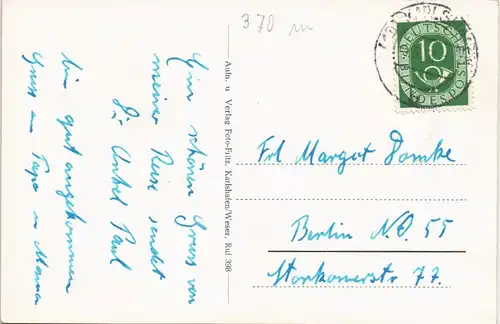 370 m
KARLSHAFEN
DEUTSCHE
10
BUNDESPOST
Ein schönen Gruss von
meiner Reise sendet
Dir Onkel Paul
Bin gut angekommen
Gruss an Papa u Mama
Aufn. u Verlag Foto-Filtz, Karlshafen/Weser, Ruf 398
Frl Margot Domke
Berlin N.O. 55
Storkowerstr 77.